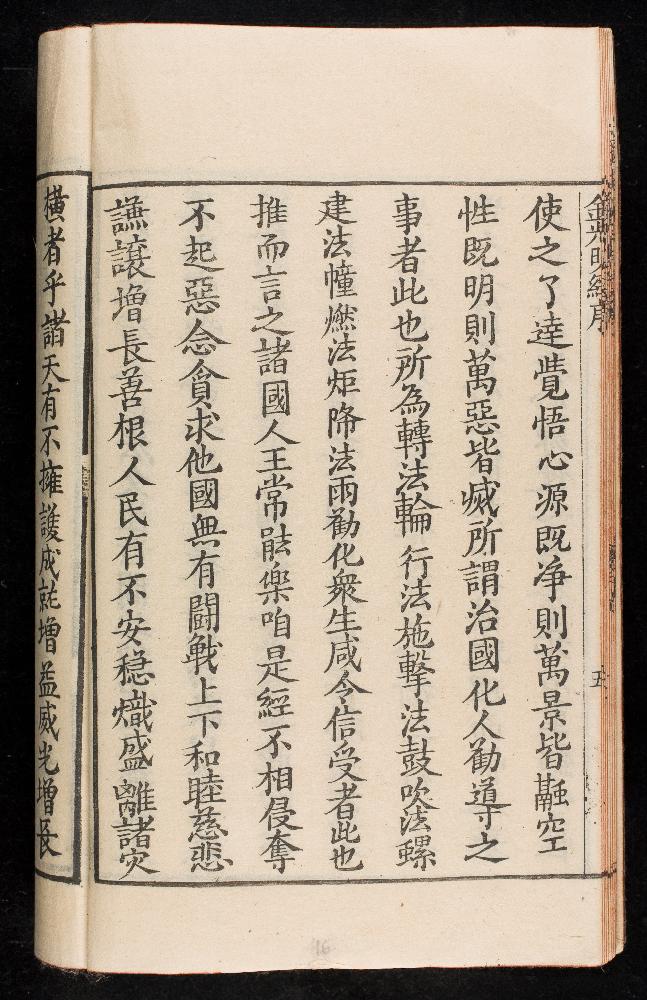 金光明經序
五
使之了達覺悟心源既净則萬景皆融空
性既明則萬惡皆滅所謂治國化人勸導之
事者此也所為轉法輪行法施擊法鼓吹法螺
建法幢燃法炬降法雨勸化衆生咸令信受者此也
推而言之諸國人王常能樂咱是經不相侵奪
不起惡念貪求他國無有鬪戰上下和睦慈悲
謙讓增長善根人民有不安穏熾盛離諸灾
橫者乎諸天有不擁護成就增益威光增長
16